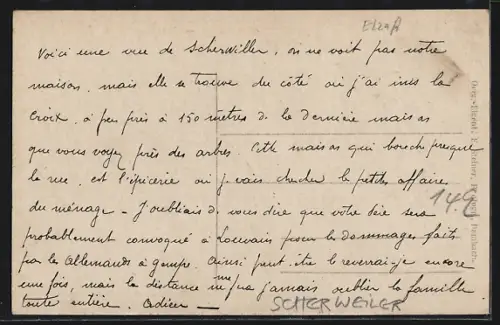 Elzaß
Voici une vue de Scherwiller, on ne voit pas notre
maison, mais elle se trouve du côté où j'ai mis la
Croix, à peu près à 150 mètres de la dernière maison
que vous voyez près des arbres. Cette maison qui bouche presque
la rue, est l'épicerie où je vais chercher les petites affaires
du ménage - J'oubliais de vous dire que votre père sera
probablement convoqué à Louvain pour les dommages faits
par les Allemands à Ainsi peut-être le reverrai-je encore
une fois, mais la distance ne me fera jamais oublier la famille
toute entière. Adieu -
14.9
SCHERWEILER